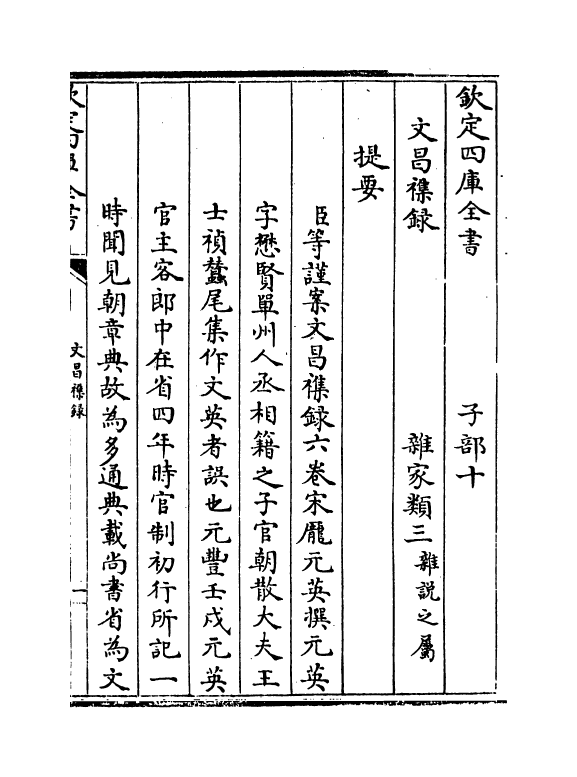 欽定四庫全書　子部十
文昌襍録　雜家類三雜説之屬
提要
臣等謹案文昌襍録六卷宋龎元英撰元英
字懋賢單州人丞相籍之子官朝散大夫王
士禎蠶尾集作文英者誤也元豐壬戍元英
官主客郎中在省四年時官制初行所記一
時聞見朝章典故為多通典載尚書省為文
欽定四庫全書
文昌襍録
一